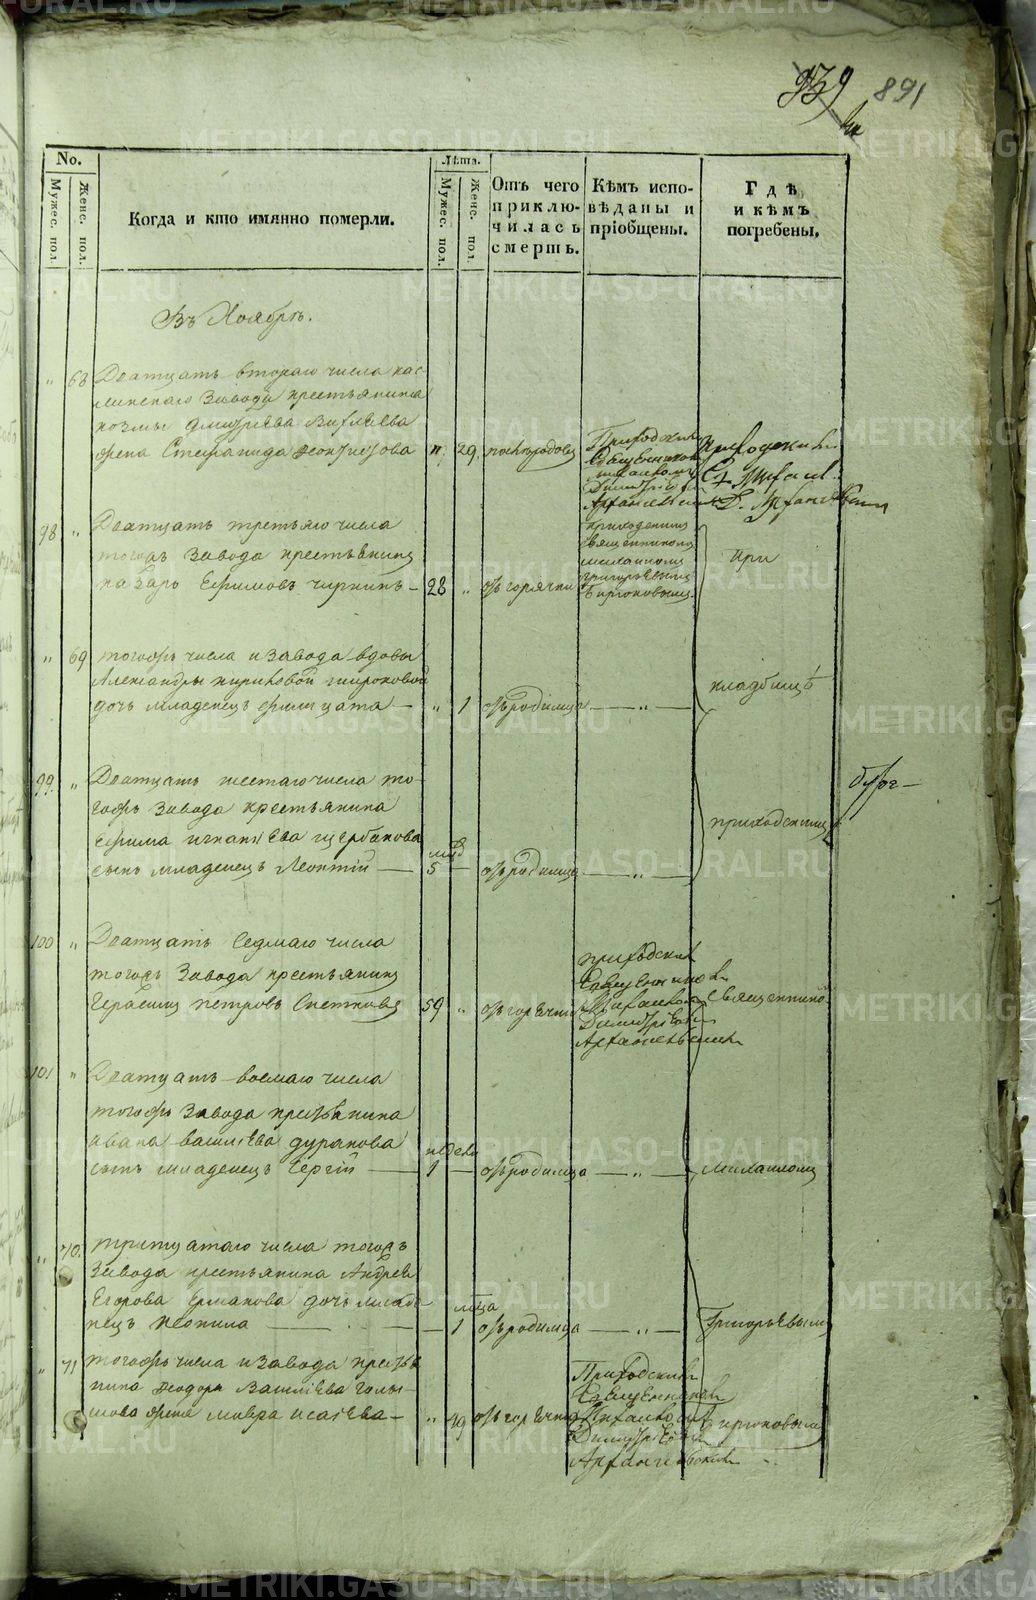 939 891
No.
Мужес. пол.
Женс. пол.
Когда и кто имянно померли.
Лѣта.
Мужес. пол.
Женс. пол.
Отъ чего приклю-чилась смерть.
Кѣмъ испо-вѣданы и пріобщены.
Гдѣ и кѣмъ погребены.
Въ Ноябрѣ.
" 68 Дватцать втораго числа кас-
линскаго Завода крестьянина
козмы Дмитріева
жена Стефанида Леонтьева " 29.
Приходским
Священником
Михаиломъ
Димитріевым
Архангельским
Приходским
98 " Дватцать третьяго числа
тогожъ Завода крестьянинъ
Назаръ Ефимовъ чиркинъ – 28 " отъ горячки
приходскимъ
священникомъ
михаиломъ
григорьевымъ
Бирюковымъ
при
" 69 тогожъ числа и Завода вдовы
Александры кириловой широковой
дочь младенецъ фелицата – " 1 отъ родимца – " –
кладбищѣ
99. " Дватцать шестаго числа то-
гожъ Завода крестьянина
Ефима игнатіева щербакова
сынъ младенецъ Леонтій – 5 – отъ родимца – " –
приходскимъ
100 " Дватцать седмаго числа
тогожъ Завода крестьянинъ
Герасимъ петровъ 59 " отъ горячки
приходским
Священником
Михаиломъ
Димитріевым
Архангельским
священнико
101 " Дватцать восмаго числа
тогожъ Завода крестьянина
ивана василіева дуракова
недели
сынъ младенецъ Сергій – 1 – отъ родимца – " –
михаиломъ
" 70. тритцатаго числа тогожъ
Завода крестьянина Андрея
Егорова Ермакова дочь младе-
мѣсяца
нецъ Неонила – – 1 отъ родимца – " –
Григорьевымъ
" 71 тогожъ числа и Завода крестья
нина Феодора Василіева голы-
шова жена мавра исаіева – " 49 отъ горячки
Приходским
Священником
Михаиломъ
Димитріевым
Архангельским
Бирюковымъ
METRIKI.GASO-URAL.RU